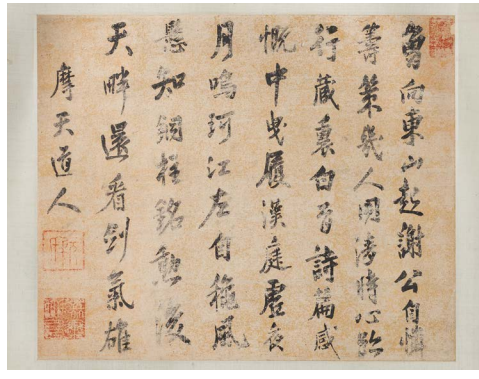 曾向東山起謝公自憐
籌策幾人同濟時心跡
行藏裏白首詩篇感
慨中曳履漢庭虛夜
月鳴珂江左自穐風
懸知銅柱銘勲後
天畔還看劍氣雄
摩天道人